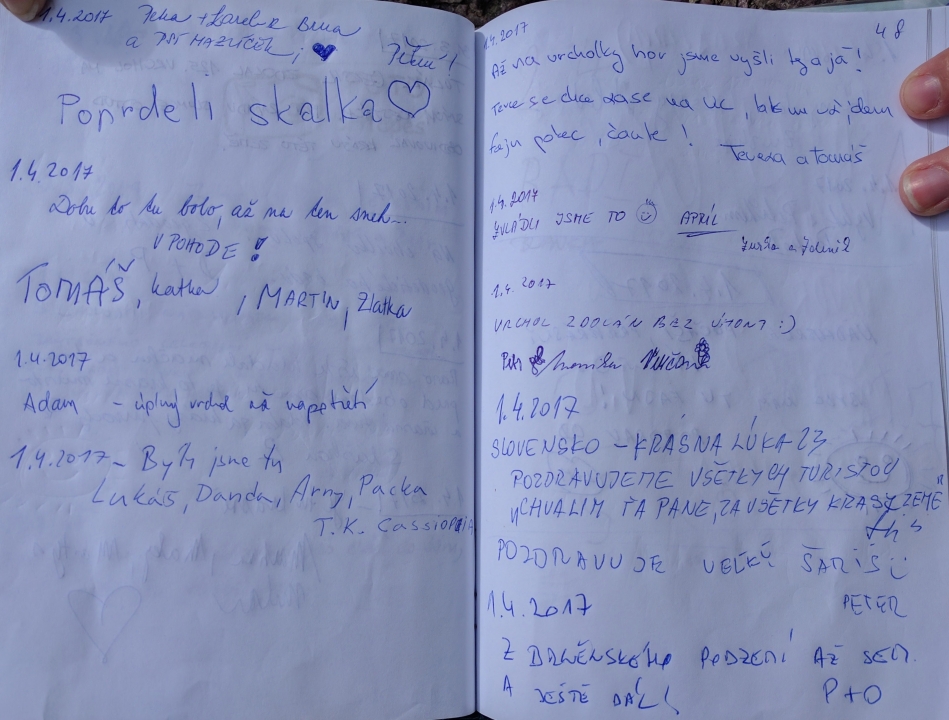 1.4.2017 Petra + Karel z Brna
a psí mazlíček,
Poprdeli skalka
1.4.2017
Dobre to tu bolo, až na ten sneh...
V POHODE!
TOMÁŠ, Katka, MARTIN, Zlatka
1.4.2017
Adam - úplný vrchol na
1.4.2017 - Byli jsme tu
Lukáš, Danda, Arny, Packa
T.K. CASSIOPEIA
48
1.4.2017
Až na vrcholky hor jsme vyšli ty a já!
se chce zase na WC, tak
čaute!
Tereza a Tomáš
1.4.2017
ZVLÁDLI JSME TO APRÍL
Zuzka a Zdeněk
1.4.2017
VRCHOL ZDOLÁN BEZ ÚJMY :)
Petr Monika
1.4.2017
SLOVENSKO - KRÁSNA LÚKA 23
POZDRAVUJEME VŠETKÝCH TURISTOV
"CHVALIM ŤA PANE, ZA VŠETKY KRÁSY ZEME"
POZDRAVUJE VEĽKÝ ŠARIŠ :)
1.4.2017 PETER
Z BRNĚNSKÉHO PODZEMÍ AŽ SEM.
A JEŠTĚ DÁL! P+O